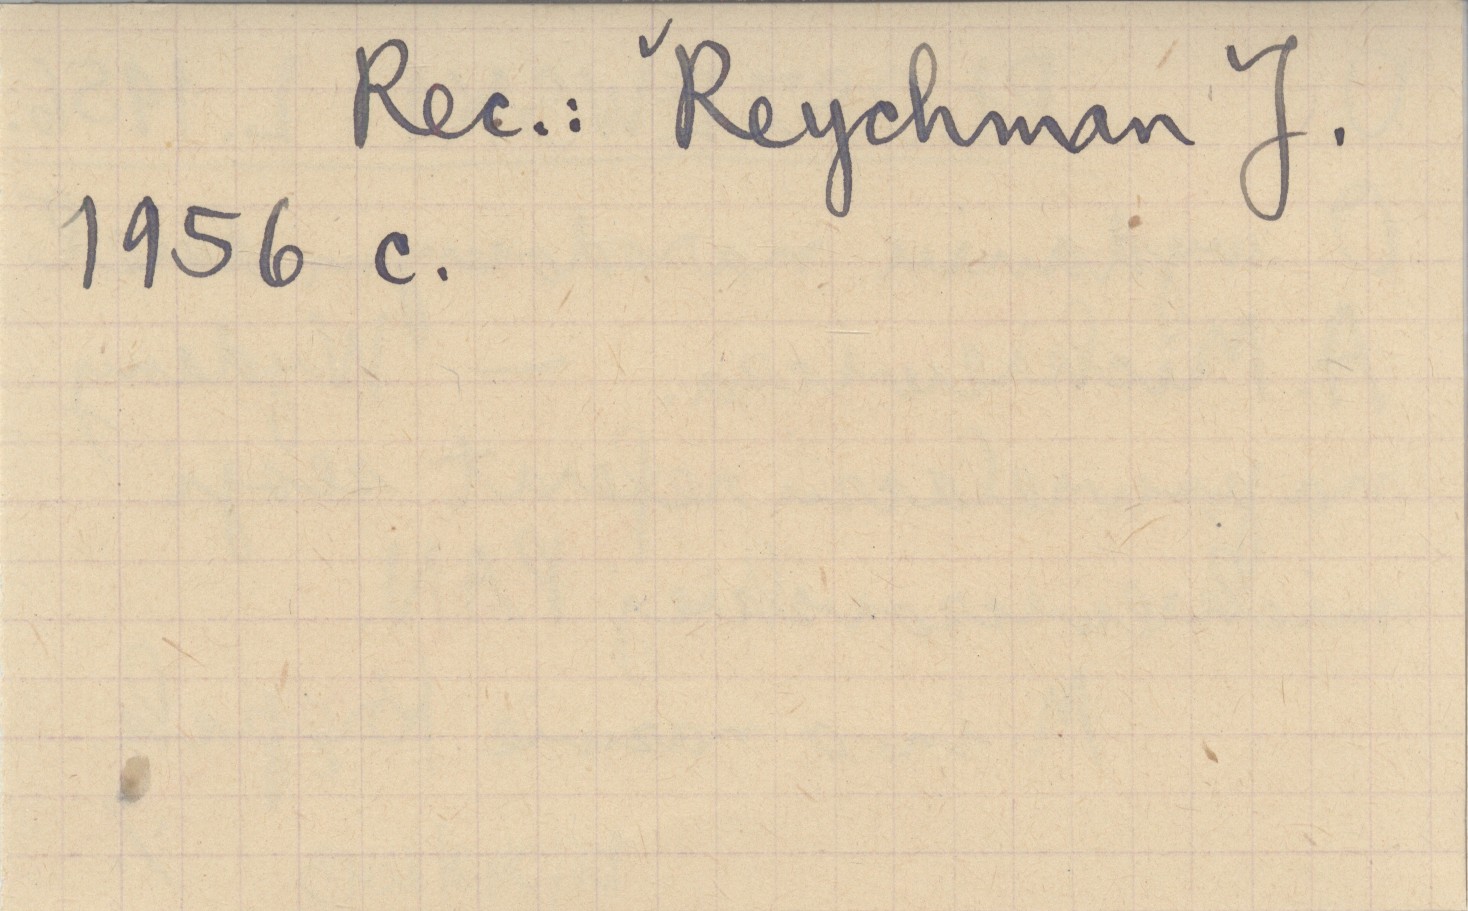 Rec.: Reychman J.
1956 c.